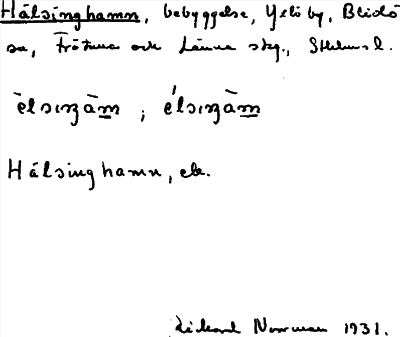 Hälsinghamn, bebyggelse, Yxlöby, Blidö
sn, Frötuna och Länna skg., Sthlms l.
èlsıŋàm̲ ; élsıŋàm̲
Hälsinghamn, eb.
Rickard Norrman 1931.